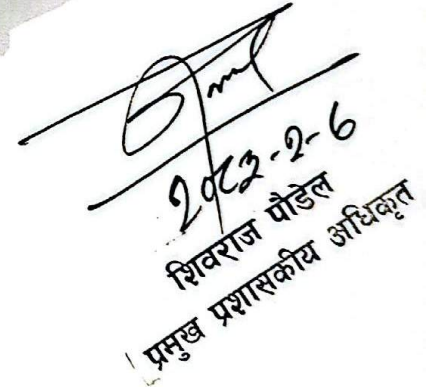 २०८३-२-६
शिवराज पौडेल
प्रमुख प्रशासकीय अधिकृत